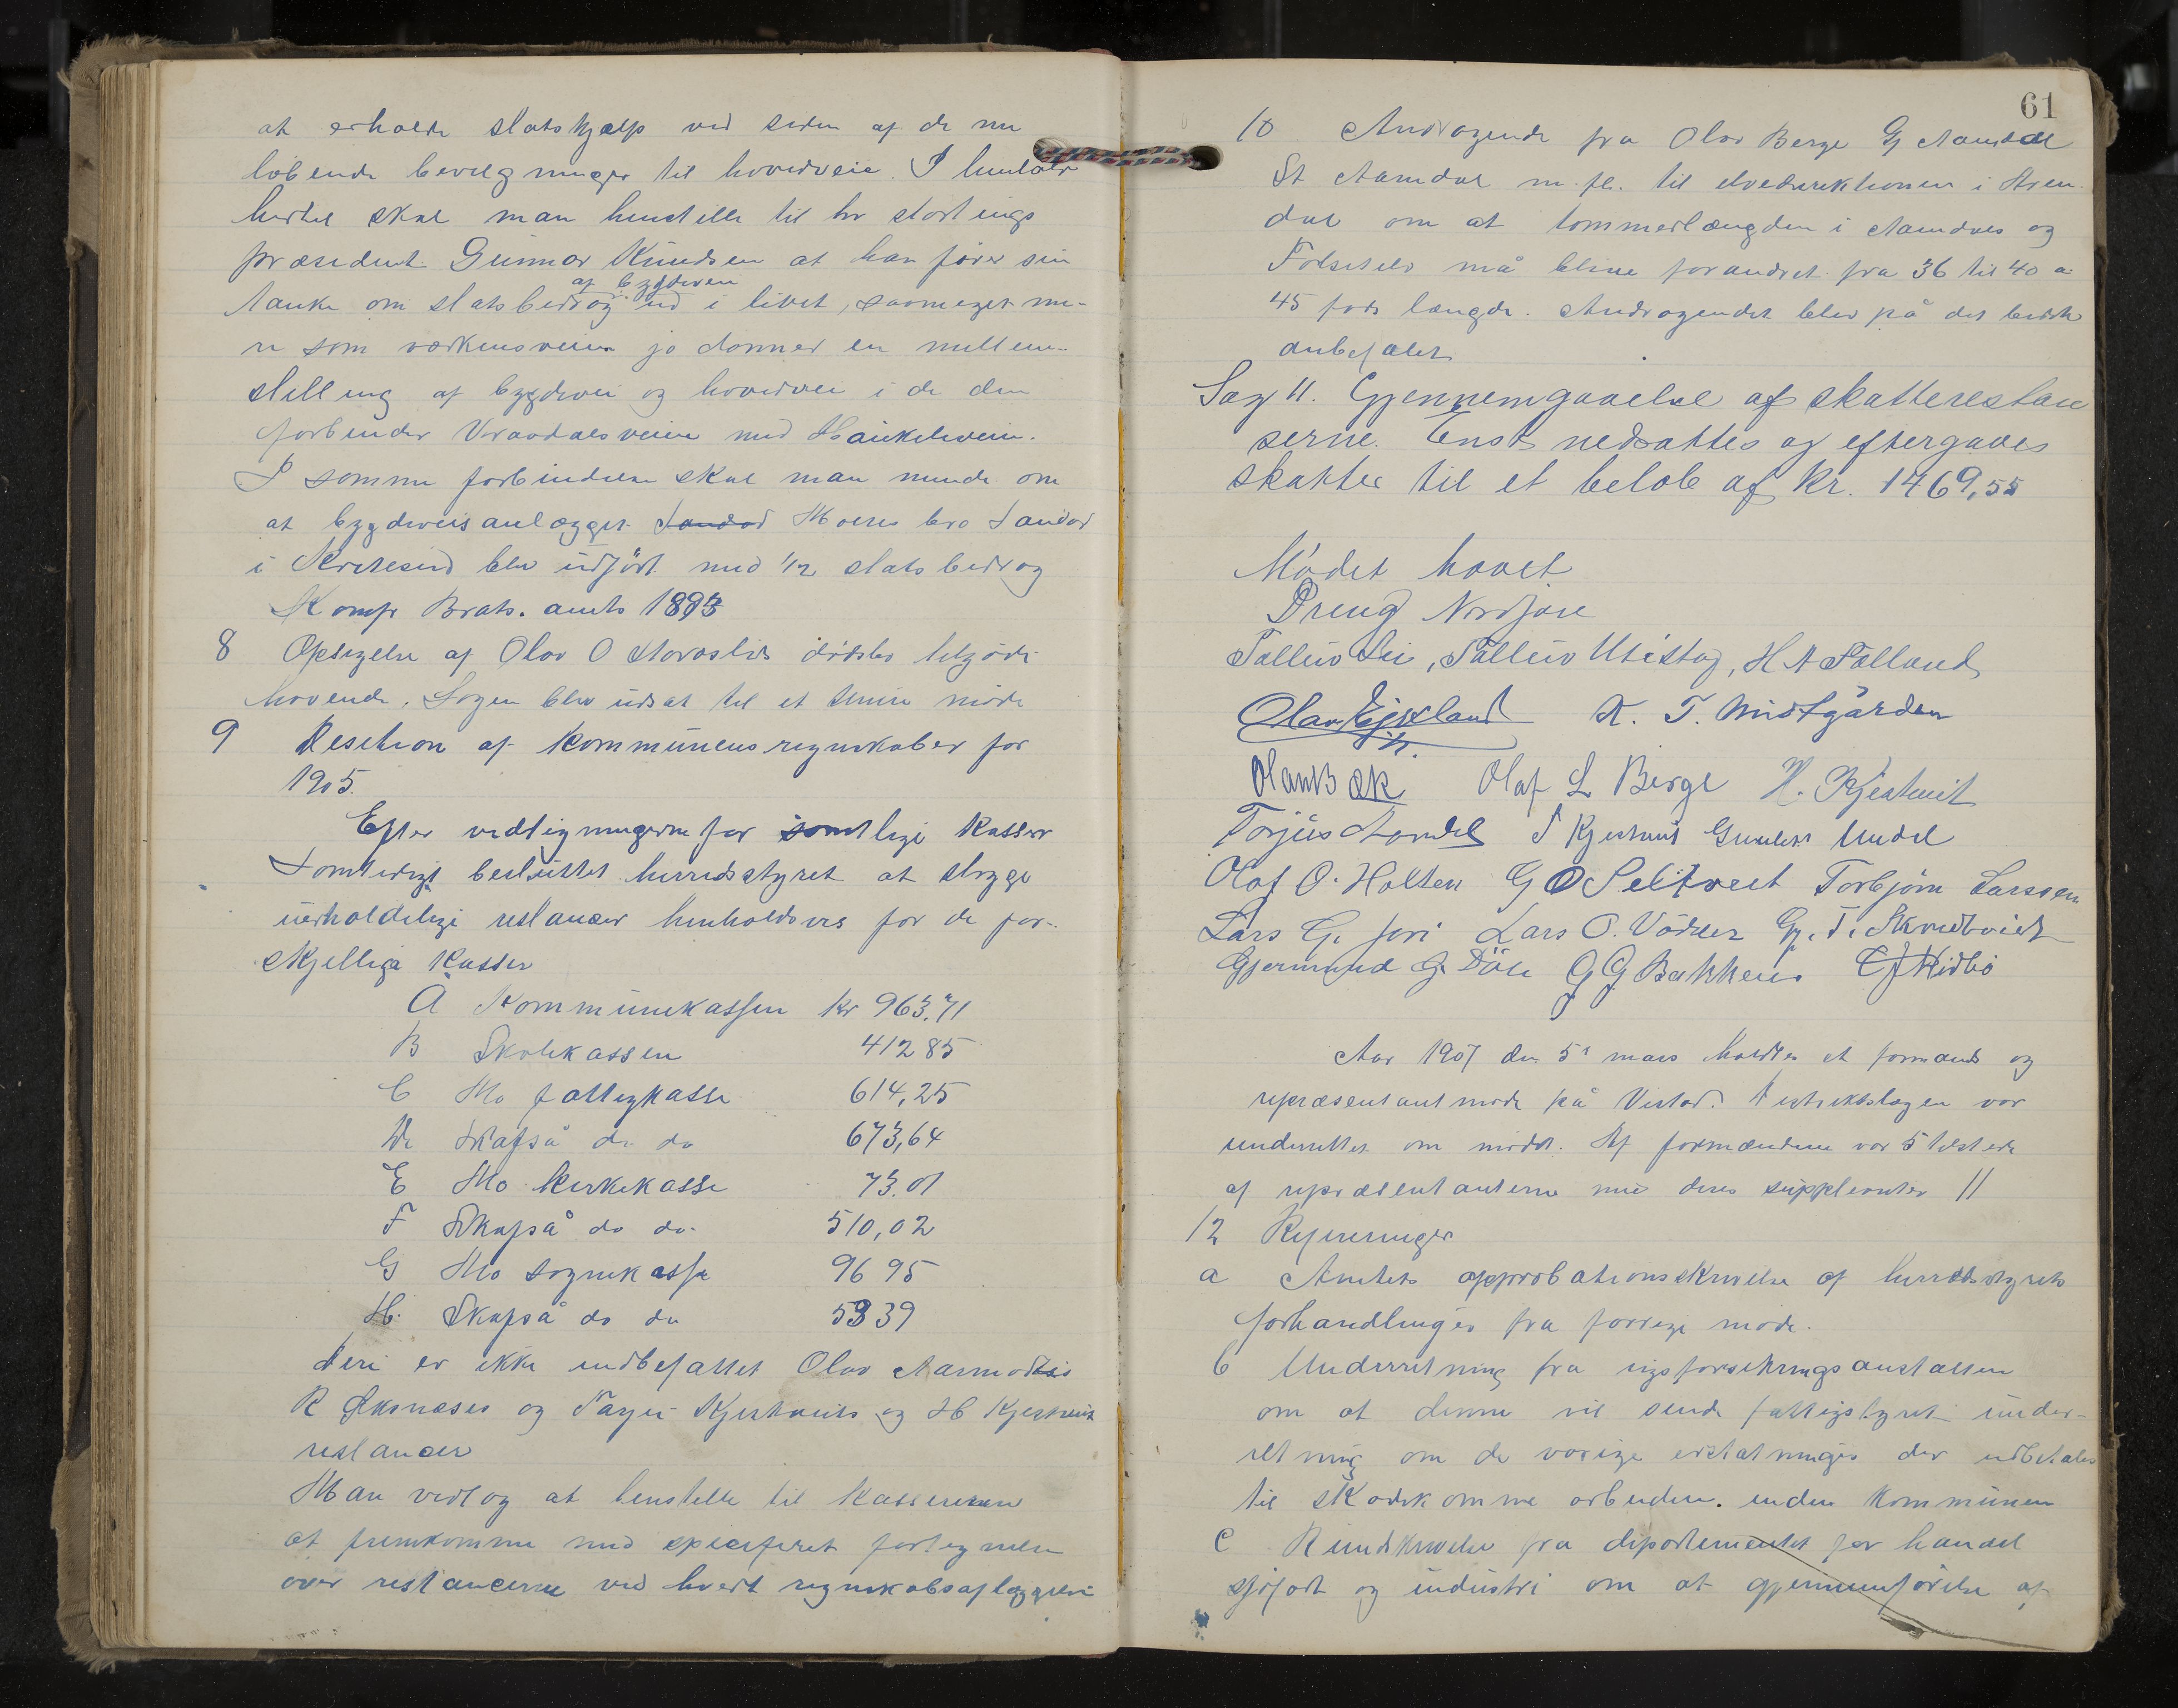 at erholde statshjælp ved siden af de nu
løbende bevilgninger til hovedveie. I henhold
hertil skal man henstille til hr stortings
præsident Gunnar Knudsen at han fører sin
af bygdeveie
tanke om statsbedrag ud i livet, saameget me-
re som verkensveien jo danner en mellem-
stilling af bygdevei og hovedvei i de den
forbinder Vraadalsveien med Haukeliveien.
I samme forbindelse skal man minde om
at bygdeveisanlægget Sandad Moens bro Sandad
i Kviteseid blev udført med 1/2 statsbedrag
Konfr Brats. amts 1893
8 Opsigelse af Olav O dødsbo tilgode
havende. Sagen blev udsat til et senere møde
9 Desition af kommunens regnskaber for
1905.
Efter vedtegningerne for samtlige kasser
Samtidigt besluttet herredsstyret at stryge
uerholdelige restancer henholdsvis for de for-
skjellige kasser
A Kommunekassen kr 963.71
B Skolekassen 412 85
C Mo fattigkasse 614,25
D Skafså do do 673,64
E Mo kirkekasse 73.01
F Skafså do do 510,02
G Mo sognekasse 96 95
H. Skafså do do 53 39
Heri er ikke indbefattet Olav
R Øksnæses og Kjeshveits og H Kjeshveit
restancer
Man vedtog at henstille til kassereren
at fremkomme med specifiseret fortegnelse
over restancerne ved hvert regnskabsaflæggelse
61
10 Andragende fra Olav Berge G Aamdal
St Aamdal m. fl. til elvedirektionen i Aren-
dal om at tømmerlængden i Aamdals og
må blive forandret fra 36 til 40 a
45 fods længde. Andragendet blev på det bedste
anbefalet
Sag 11. Gjennemgaaelse af skatterestan
serne. Enst nedsattes og eftergaves
skatter til et beløb af kr. 1469,55
Mødet hævet
Dreng Nordjore
Talleiv Lie, Talleiv Utistog, H A Falland
Olav Ejkland K. T. Midtgården
Olav Bæk Olaf L Berge H. Kjeshveit
Torjus Aamdal T Kjeshveit Gunleik Undal
Olaf O. Holten G O Seltveit Torbjörn Larssen
Lars G. Jori Lars O. Vådder G. T. Skredtveit
Gjermund G. G G Bakkens
Aar 1907 den 5te mars holdtes et formands og
repræsentantmøde på Vistad. Distriktslægen var
underrettet om mødet. Af formændene var 5 tilstede
af repræsentanterne med deres suppleanter 11
12 Refereringer
a Amtets approbationsskrivelse af herredsstyrets
forhandlinger fra forrige møde.
b Underretning fra rigsforsikringsanstalten
om at denne vil sende fattigstyret under-
retning om de varige erstatninger der udbetales
til skadekomne arbeidere. inden kommunen
c Rundskrivelse fra departementet for handel
sjøfart og industri om at gjennemførelse af